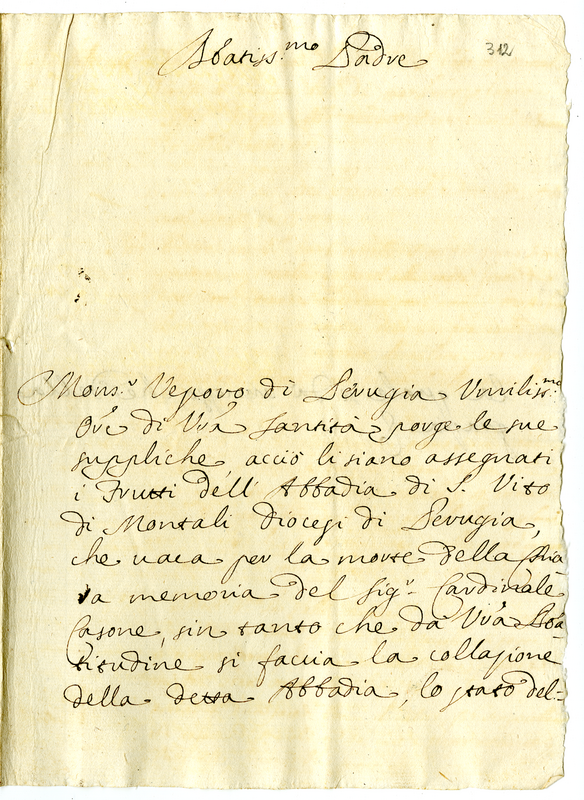 Beatiss.mo Padre
312
Mons.r Vescovo di Perugia Vmiliss.mo
Ore di Vra Santità porge le sue
suppliche, acciò li siano assegnati
i Frutti dell' Abbadia di S. Vito
di Montali Diocesi di Perugia,
che uaca per la morte della
a memoria del Sig.r Cardinale
Casone, sin tanto che da Vra Bea=
titudine si faccia la collasione
della detta Abbadia, lo stato del=